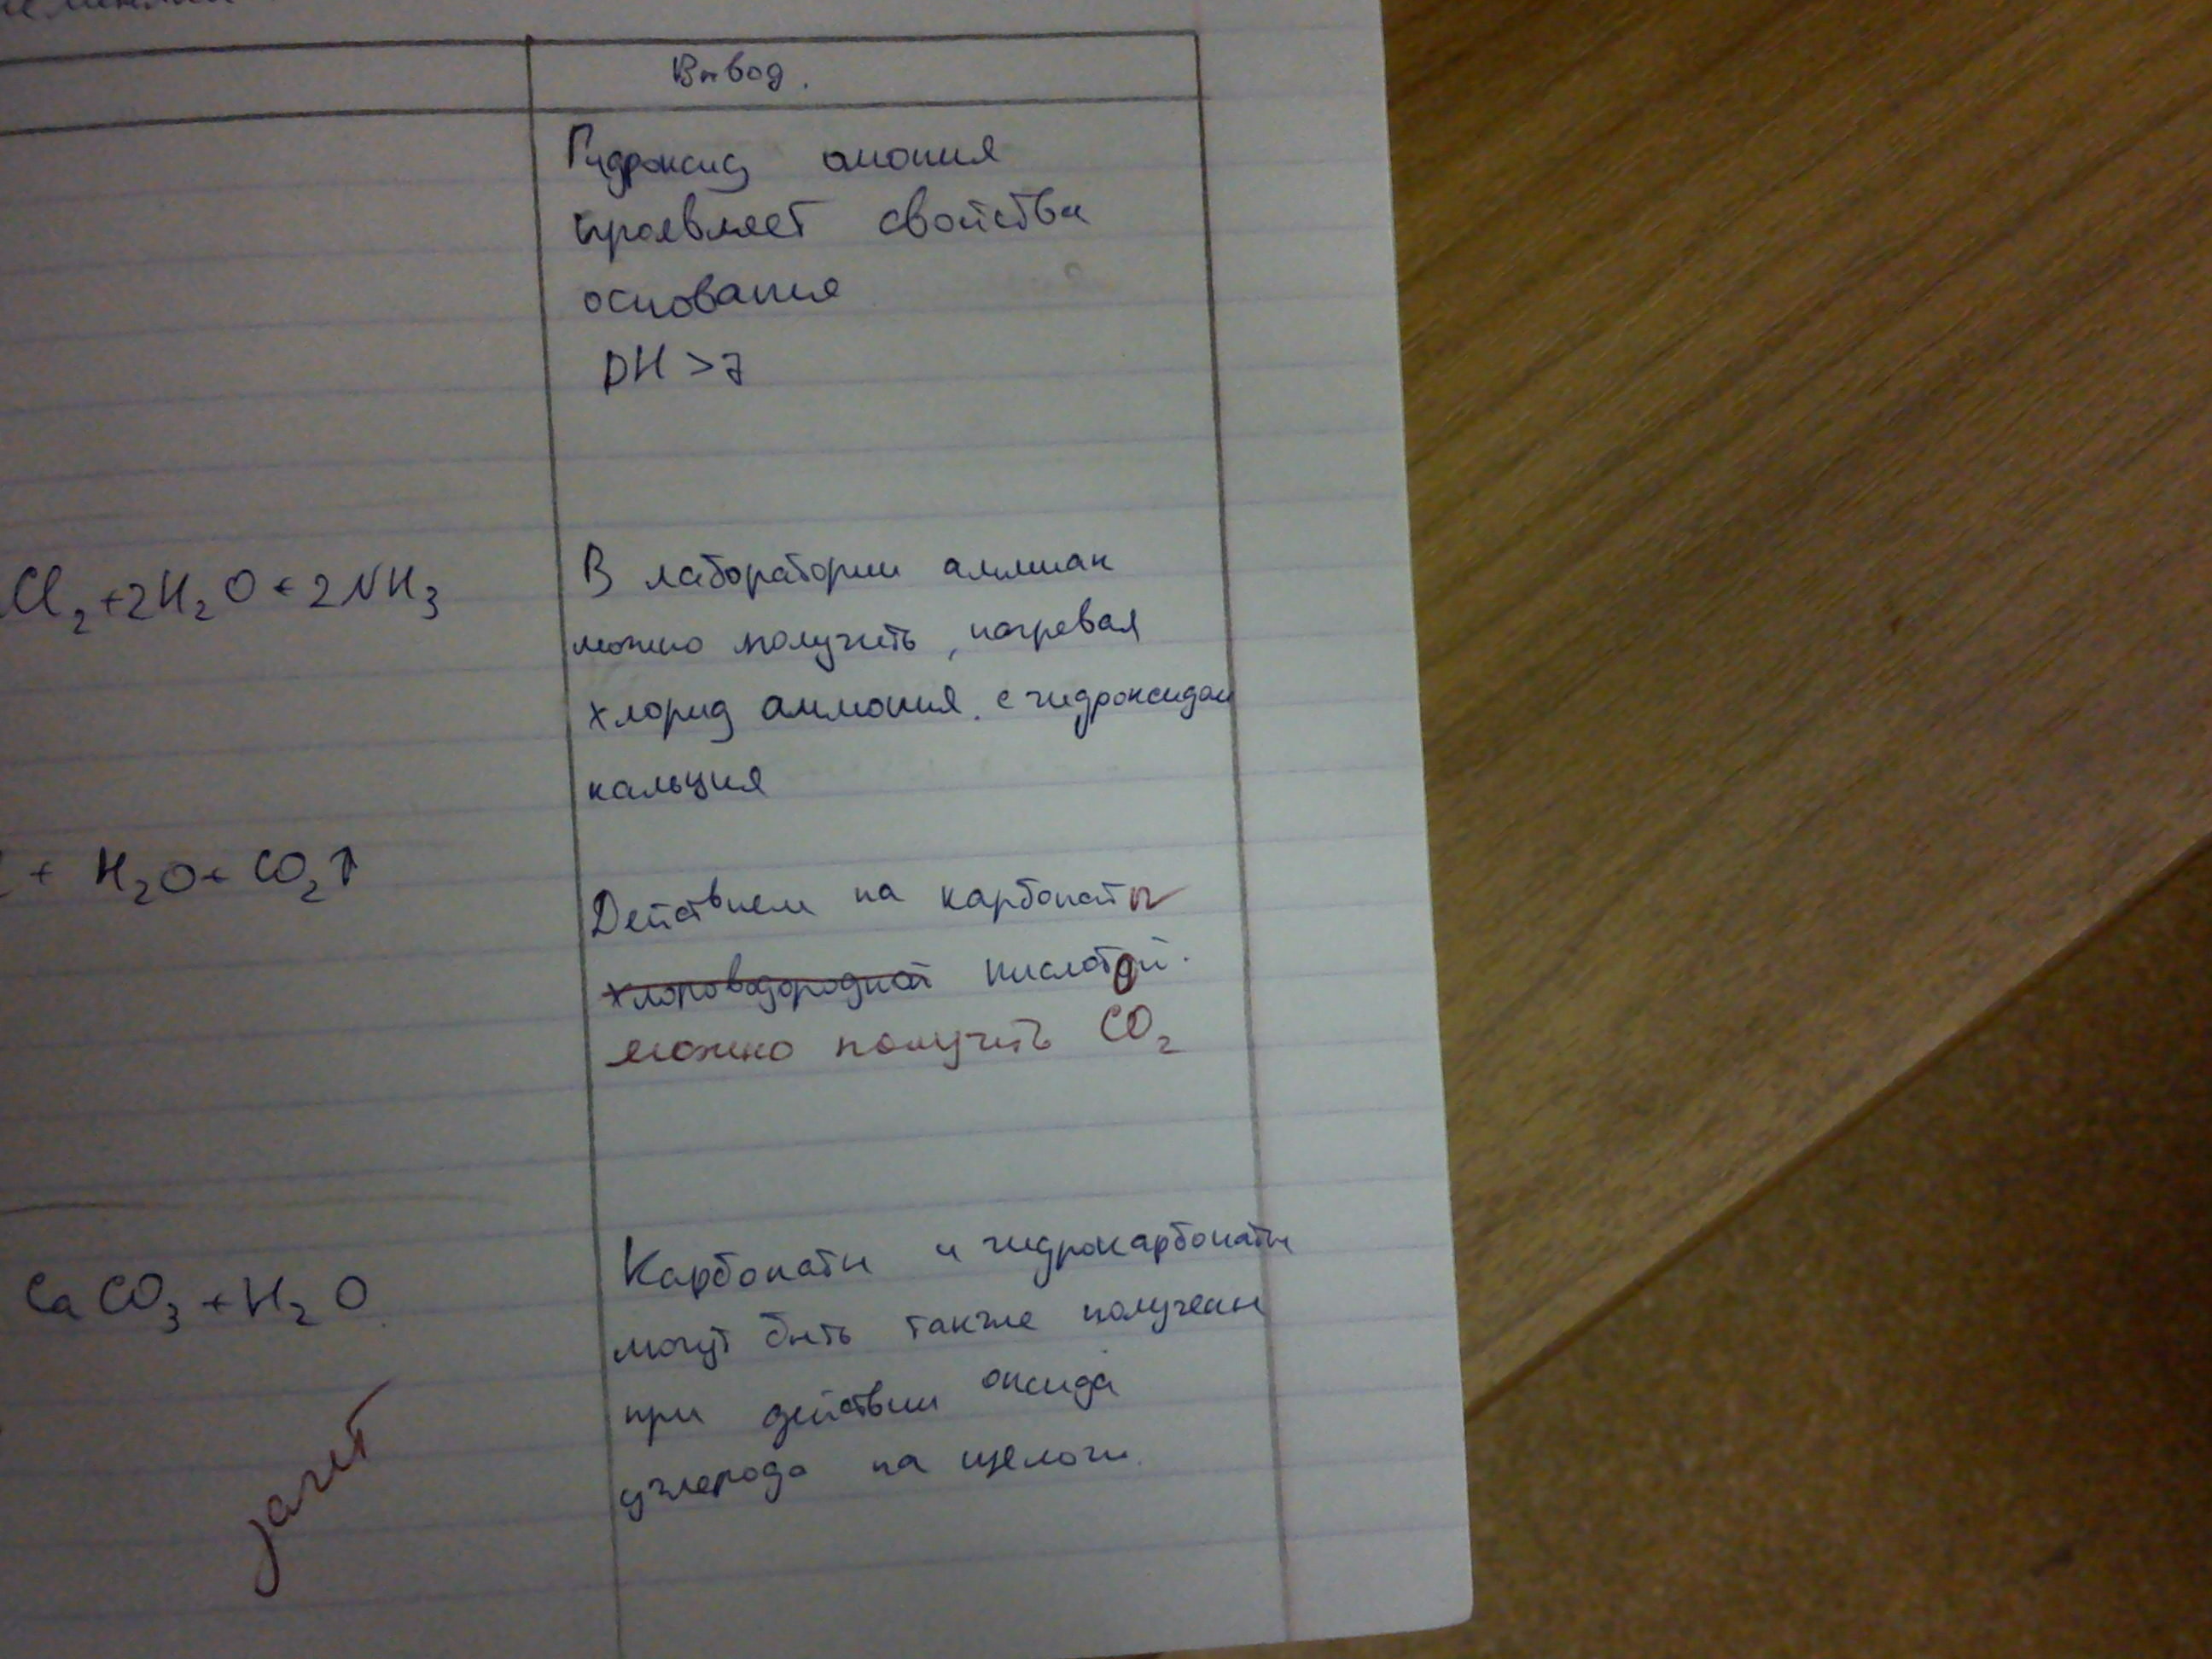 Вывод.
Гидроксид амония
проявляет свойства
основания
pH > 7
Cl₂ + 2H₂O + 2NH₃
В лаборатории аммиак
можно получить, нагревая
хлорид аммония с гидроксидом
кальция
+ H₂O + CO₂↑
Действием на карбонаты
хлороводородной кислотой.
можно получить CO₂
CaCO₃ + H₂O
Карбонаты и гидрокарбонаты
могут быть также получены
при действии оксида
углерода на щелочи.
зачет